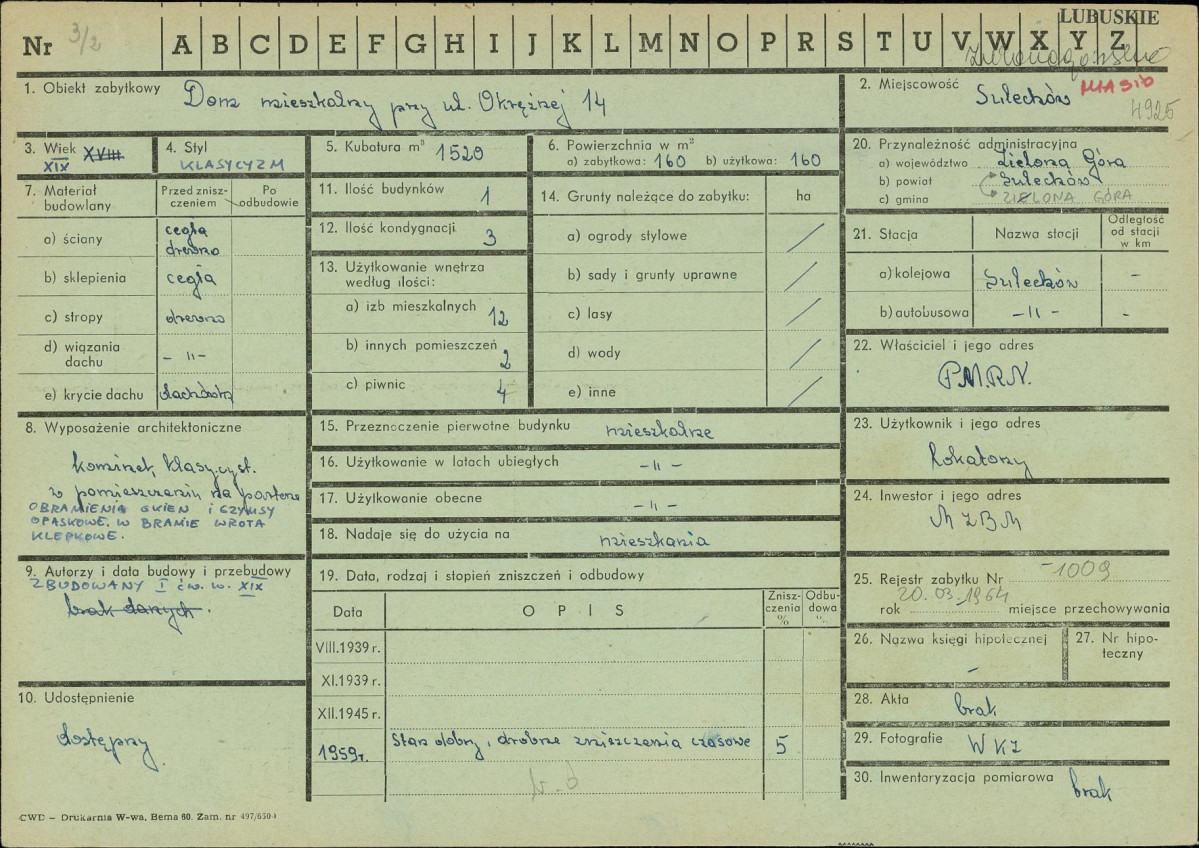 LUBUSKIE
Nr 3/2 A B C D E F G H I J K L M N O P R S T U V W X Y Z
1. Obiekt zabytkowy Dom mieszkalny przy ul. Okrężnej 14
2. Miejscowość Sulechów MIASTO
4925
3. Wiek XVIII
XIX
4. Styl
KLASYCYZM
5. Kubatura m³ 1520
6. Powierzchnia w m²
a) zabytkowa: 160 b) użytkowa: 160
7. Materiał budowlany
Przed zniszczeniem
Po odbudowie
a) ściany cegła drewno
b) sklepienia cegła
c) stropy drewno
d) wiązania dachu - " -
e) krycie dachu dachówka
8. Wyposażenie architektoniczne
kominek klasycyst.
w pomieszczeniu na parterze
OBRAMIENIA OKIEN I GZYMSY
OPASKOWE. W BRAMIE WROTA
KLEPKOWE.
9. Autorzy i data budowy i przebudowy
ZBUDOWANY I ćw. w. XIX
brak danych.
10. Udostępnienie
dostępny
11. Ilość budynków 1
12. Ilość kondygnacji 3
13. Użytkowanie wnętrza
według ilości:
a) izb mieszkalnych 12
b) innych pomieszczeń 2
c) piwnic 4
14. Grunty należące do zabytku: ha
a) ogrody stylowe /
b) sady i grunty uprawne /
c) lasy /
d) wody /
e) inne /
15. Przeznoczenie pierwotne budynku mieszkalne
16. Użytkowanie w latach ubiegłych - " -
17. Użytkowanie obecne - " -
18. Nadaje się do użycia na mieszkania
19. Data, rodzaj i stopień zniszczeń i odbudowy
Data OPIS Zniszczenia % Odbudowa %
VIII.1939 r.
XI.1939 r.
XII.1945 r.
1959r. Stan dobry, drobne zniszczenia czasowe 5
20. Przynależność administracyjna
a) województwo Zielona Góra
b) powiat Sulechów
c) gmina ZIELONA GÓRA
21. Stacja Nazwa stacji Odległość od stacji w km
a) kolejowa Sulechów -
b) autobusowa - " - -
22. Właściciel i jego adres
PMRN.
23. Użytkownik i jego adres
Lokatorzy
24. Inwestor i jego adres
MZBM
25. Rejestr zabytku Nr -1009
rok 20.03.1964 miejsce przechowywania
26. Nazwa księgi hipotecznej
-
27. Nr hipoteczny
28. Akta brak
29. Fotografie WKZ
30. Inwentaryzacja pomiarowa brak
CWD – Drukarnia W-wa, Bema 60. Zam. nr